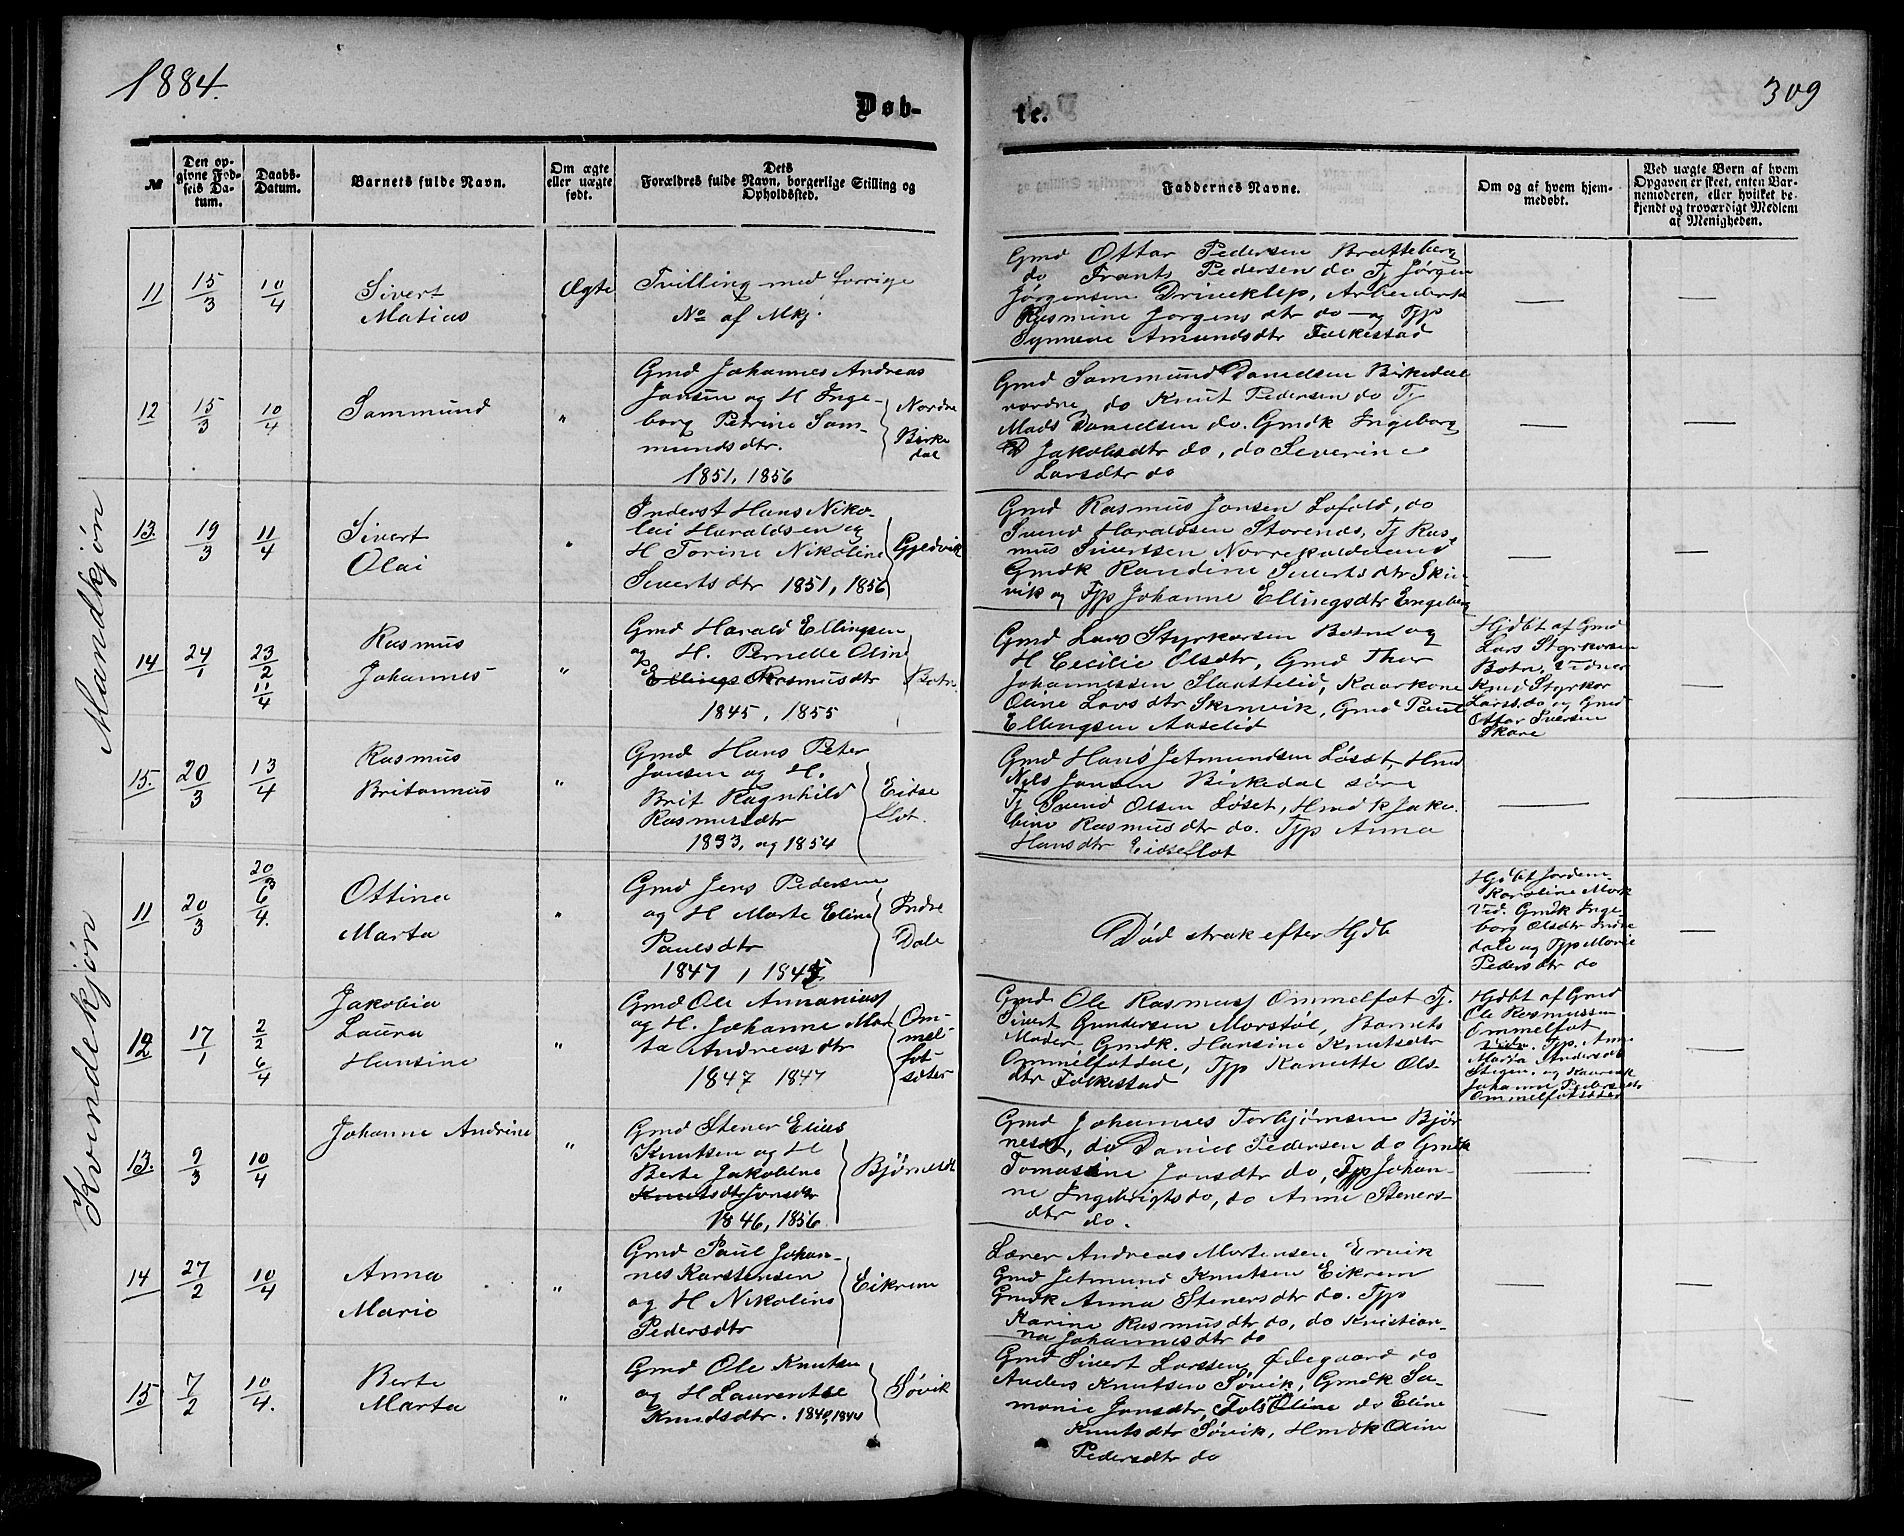 1884.
309
Døb-
te.
№
Den op-
givne Fød-
sels Da-
tum.
Daabs-
Datum.
Barnets fulde Navn.
Om ægte
eller uægte
født.
Dets
Forældres fulde Navn, borgerlige Stilling og
Opholdssted.
Faddernes Navne.
Om og af hvem hjem-
medøbt.
Ved uægte Børn af hvem
Opgaven er skeet, enten Bar-
nemoderen, eller hvilket be-
kjendt og troværdigt Medlem
af Menigheden.
Mandkjøn
11
15/3
10/4
Sivert
Matias
Ægte
Tvilling med forrige
No af Mkj.
Gmd Ottar Pedersen Bratteberg
do Frants Pedersen do Tj Jørgen
Jørgensen Driveklep, Arbeiderske
Rasmine Jørgensdtr do og Tjp
Synneve Amundsdtr Folkestad
12
15/3
10/4
Sammund
"
Gmd Johannes Andreas
Jonsen og H Inge-
borg Petrine Sam-
mundsdtr.
1851, 1856
Nordre
Birke
dal
Gmd Sammund Danielsen Birkedal
nordre, do Knut Pedersen do Tj
Mads Danielsen do. Gmdk Ingeborg
Jakobsdtr do, do Severine
Larsdtr do
13.
19/3
11/4
Sivert
Olai
"
Inderst Hans Niko-
lai Haraldsen og
H Torine Nikoline
Sivertsdtr 1851, 1856
Gjedvik
Gmd Rasmus Jonsen Lofold, do
Svend Haraldsen Storenes, Tj Ras
mus Sivertsen
Gmdk Randine Sivertsdtr Skin
vik og Tjp Johanne Ellingsdtr Engeberg
14
24/1
23/2
11/4
Rasmus
Johannes
"
Gmd Harald Ellingsen
og H. Pernelle Oline
Ellings Rasmusdtr
1845, 1855
Botn
Gmd Lars Styrkorsen Botn og
H Cecilie Olsdtr, Gmd Thor
Johannessen Slaattelid, Kaarkone
Oline Larsdtr Skinvik, Gmd Paul
Ellingsen Aaselid
Hjdbt af Gmd
Lars Styrkorsen
Botn, Vidner
Knud Styrkor
Larss do og Gmd
Ottar Iversen
Skare
15.
20/3
13/4
Rasmus
Britannus
"
Gmd Hans Peter
Jansen og H.
Brit Ragnhild
Rasmusdtr
1853, og 1854
Eidse
flot.
Gmd Hans Jetmundsen Løset, Hmd
Nils Jonsen Birkedal søre
Tj Svend Olsen Løset, Hmdk Jako
bine Rasmusdtr do. Tjp Anna
Hansdtr Eidseflot
Kvindekjøn
11
20/3
20/3
6/4.
Ottina
Marta
"
Gmd Jens Pedersen
og H Marte Eline
Paulsdtr
1847, 1845
Indre
Dale
Død strak efter Hjdb
Hjdbt Jordem.
Karoline Mork
Vid. Gmdk Inge
borg Olsdtr Indre
dale og Tjp Marie
Pedersdtr do
12
17/1
2/2
6/4
Jakobia
Laura
Hansine
"
Gmd Ole Annanias
og H. Johanne Mar
ta Andreasdtr
1847 1847
Om-
mel-
fot-
sæter
Gmd Ole Rasmuss Ommelfot Tj.
Sivert Gundersen Morstøl, Barnets
Moder Gmdk. Hansine Knutsdtr
Ommelfotdal, Tjp Kanutte Ols-
dtr Folkestad
Hjdbt af Gmd
Ole Rasmussen
Ommelfot
Vidn. Tjp. Ane
Maria Andersdt
Stigen, og Kaarek
Johanne Pedersdtr
Ommelfotsæter
13.
2/3
10/4
Johanne Andrine
"
Gmd Stener Elias
Knutsen og H
Berte Jakobine
Knutsdtr Jonsdtr
1846, 1856
Bjørneset
Gmd Johannes Torbjørnsen Bjør
neset, do Daniel Pedersen do Gmdk
Tomasine Jonsdtr do, Tjp Johan-
ne Ingebrigts do, do Anne Steners-
dtr do.
14
27/2
10/4
Anna
Marie
"
Gmd Paul Johan-
nes Karstensen
og H Nikoline
Pedersdtr
Eikrem
Lærer Andreas Mortensen Ervik
Gmd Jetmund Knutsen Eikrem
Gmdk Anna Stenersdtr do. Tjp
Karine Rasmusdtr do, do Kristian-
na Johannesdtr do
15
7/2
10/4.
Berte
Marta
"
Gmd Ole Knutsen
og H Laurentse
Knudsdtr. 1840, 1844
Søvik
Gmd Sivert Larssen Ødegaard do
Anders Knutsen Søvik, Gmdk Sa-
monie Jonsdtr, do Eline
Knutsdtr Søvik, Hmdk Oline
Pedersdtr do